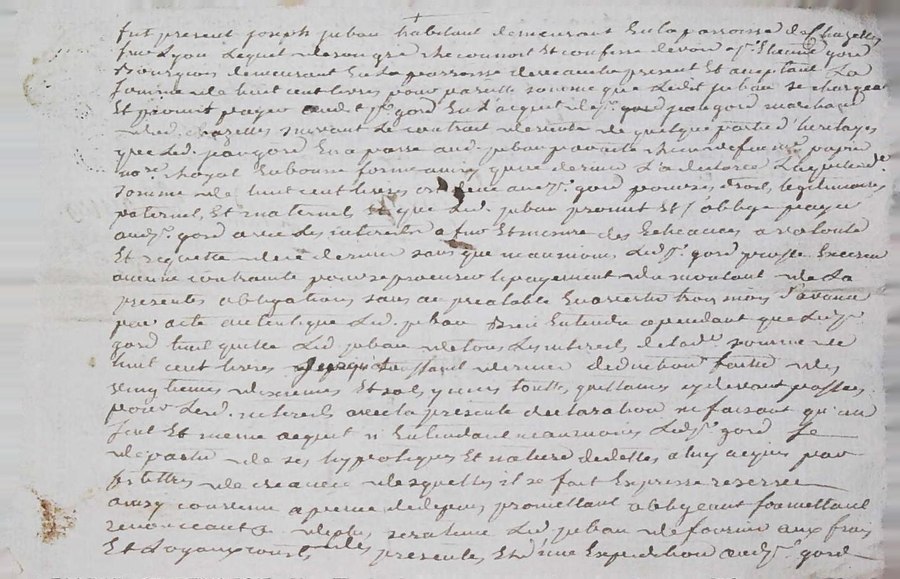 fut present joseph juban habitant demeurant en la parroisse de chazelles
sur Lyon Lequel de son gre recconnoit Et confesse devoir a sr. Etienne gord
Bourgeois demeurant En la parroisse de present Et aceptant La
somme de huit cent livres pour pareille somme que Ledit juban se chargeat
Et promit payer aud. sr. gord En L'acquit de sr. jean gord marchand
dud. chazelles suivant Le contrat de vente de quelque partie d'heritages
que Led. jean gord En a passé aud. juban pardevant papon
nore. Royal En bonne forme ainsy que dernier L'a declaré Laquelle de.
somme de huit cent livres est deue aud. sr. gord pour ses droits legitimaires
paternel, Et maternels Et que Led. juban promit Et s'oblige payer
aud. sr. gord avec Les interets a fur Et mesure des Echeances a volonté
Et requette de ce dernier sans que neanmoins Led. sr. gord puisse Exercer
aucune contrainte pour se procurer Le payement du montant de La
presente obligation, sans au prealable En avertir trois mois d'avance
par acte autentique Led. juban Bien Entendu cependant que Led. sr.
gord tient quitte Led. juban de tous Les interets de lade. somme de
huit cent livres jusqu'à deduction faite des
vingtiemes Et tels, y unis touttes quittances cy devant passées
pour Lesd. interets avec La presente declaration ne faisant qu'un
seul Et meme acquit n'Entendant neanmoins Led. sr. gord se
departir de ses hypoteques Et nature dedettes a luy acquis par
ses tittres de creance desquelles il se fait Expresse reserve
ainsy convenu a peine de depens promettant obligeant soumettant
renonceant & de plus sera tenu Led. juban de fournir aux frais
Et Loyaux couts des presentes Et d'une Expedition aud. sr. gord